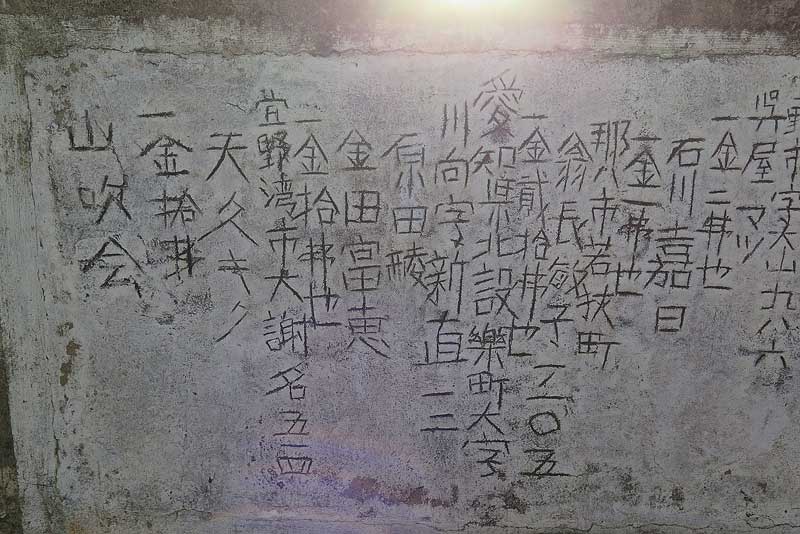 野市字大山九八六
呉屋マツ
一金二弗也
石川嘉日
一金一弗也
那八市若狭町
翁長敏子 一ノ二〇ノ五
一金貮拾弗也
愛知県北設樂町大字
川向字新直二
原田稜
金田富恵
一金拾弗也
宜野湾市大謝名五四
天久キク
一金拾弗
山吹会